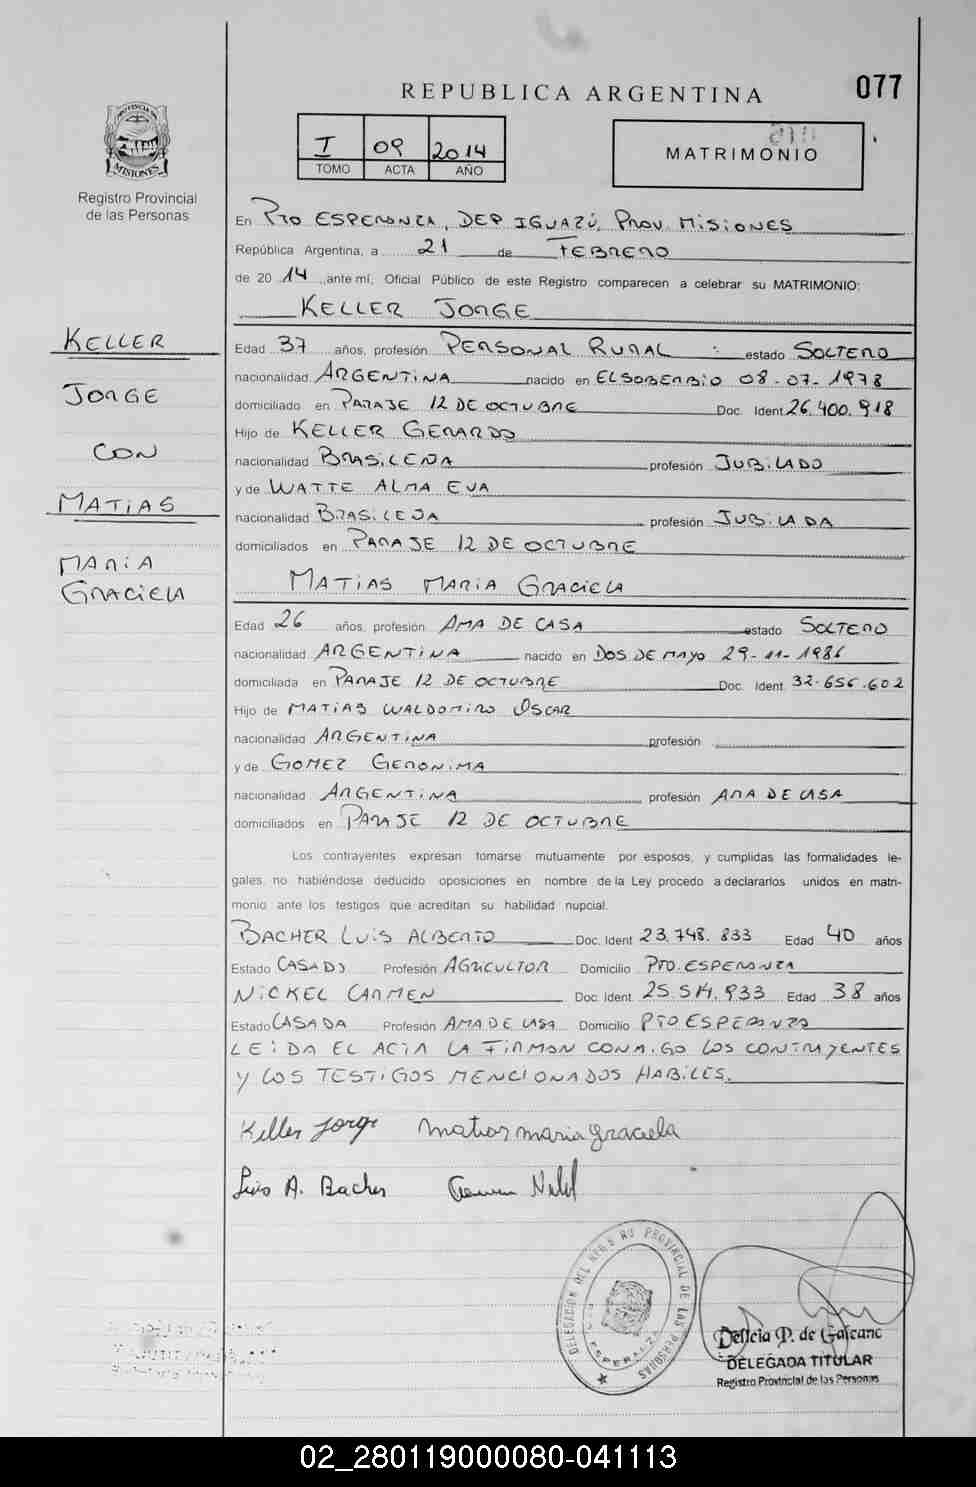 REPUBLICA ARGENTINA
077
PROVINCIA DE
MISIONES
Registro Provincial
de las Personas
I 09 2014
TOMO ACTA AÑO
MATRIMONIO
En PTO ESPERANZA, DEP IGUAZÚ, PROV. MISIONES
República Argentina, a 21 de FEBRERO
de 20 14 ante mí, Oficial Público de este Registro comparecen a celebrar su MATRIMONIO:
KELLER JORGE
KELLER
JORGE
CON
MATIAS
MARIA
GRACIELA
Edad 37 años, profesión PERSONAL RURAL estado SOLTERO
nacionalidad ARGENTINA nacido en ELSOBERBIO 08-07-1978
domiciliado en PARAJE 12 DE OCTUBRE Doc. Ident 26.400.918
Hijo de KELLER GERARDO
nacionalidad BRASILENA profesión JUBILADO
y de WATTE ALMA EVA
nacionalidad BRASILENA profesión JUBILADA
domiciliados en PARAJE 12 DE OCTUBRE
MATIAS MARIA GRACIELA
Edad 26 años, profesión AMA DE CASA estado SOLTERO
nacionalidad ARGENTINA nacido en DOS DE MAYO 29-11-1986
domiciliada en PARAJE 12 DE OCTUBRE Doc. Ident. 32.656.602
Hijo de MATIAS WALDOMIRO OSCAR
nacionalidad ARGENTINA profesión
y de GOMEZ GERONIMA
nacionalidad ARGENTINA profesión AMA DE CASA
domiciliados en PARAJE 12 DE OCTUBRE
Los contrayentes expresan tomarse mutuamente por esposos, y cumplidas las formalidades le-
gales, no habiéndose deducido oposiciones en nombre de la Ley procedo a declararlos unidos en matri-
monio ante los testigos que acreditan su habilidad nupcial.
BACHER LUIS ALBERTO Doc. Ident 23.748.833 Edad 40 años
Estado CASADO Profesión AGRICULTOR Domicilio PTO. ESPERANZA
NICKEL CARMEN Doc. Ident. 25.514.933 Edad 38 años
Estado CASADA Profesión AMA DE CASA Domicilio PTO ESPERANZA
LEIDA EL ACTA LA FIRMAN CONMIGO LOS CONTRAYENTES
Y LOS TESTIGOS MENCIONADOS HABILES.
Keller Jorge matias maria graciela
Luis A. Bacher Carmen Nikel
DELEGACION DEL REGISTRO PROVINCIAL DE LAS PERSONAS
ESPERANZA
Delicia P. de Galeano
DELEGADA TITULAR
Registro Provincial de las Personas
02_280119000080-041113